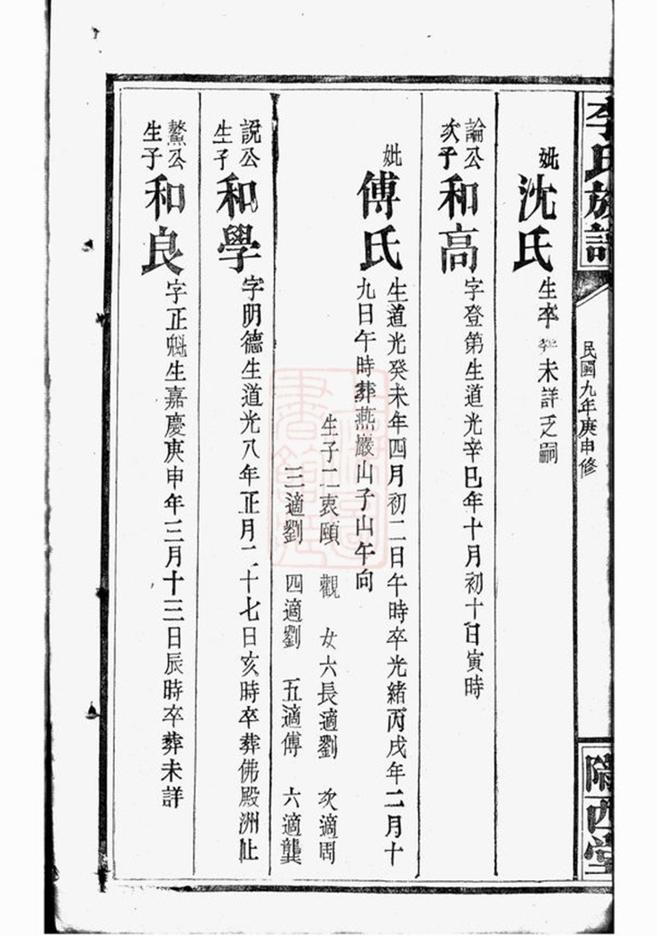 李氏族譜
民國九年庚申修
隴西堂
妣沈氏生卒葬未詳乏嗣
論公次子和高字登第生道光辛巳年十月初十日寅時
妣傅氏生道光癸未年四月初二日午時卒光緒丙戌年二月十
九日午時葬燕巖山子山午向
生子二衷頤 觀 女六長適劉 次適周
三適劉 四適劉 五適傅 六適龔
說公生子和學字明德生道光八年正月二十七日亥時卒葬佛殿洲止
鰲公生子和良字正魁生嘉慶庚申年三月十三日辰時卒葬未詳